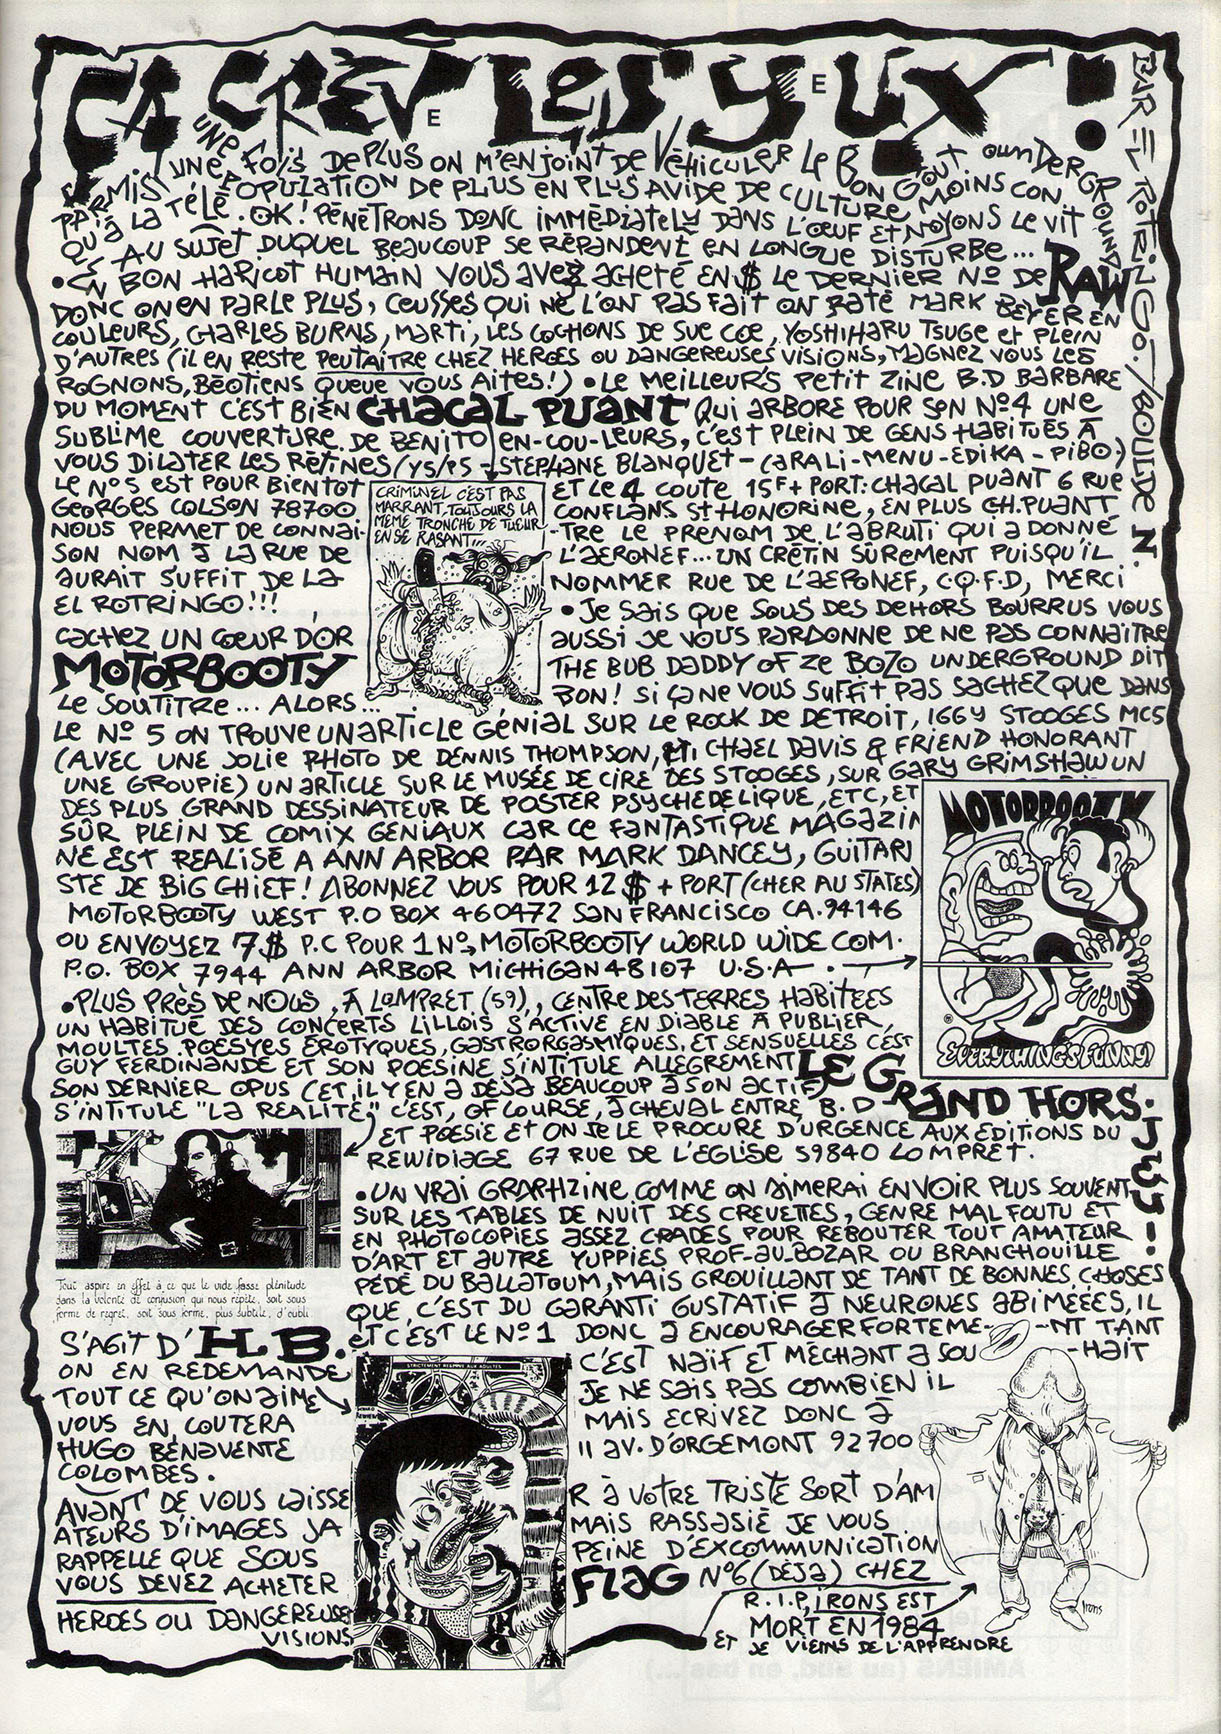 ÇA CRÈVE LES YEUX !
PAR EL ROTRINGO./BOULDE N.
UNE FOIS DE PLUS ON M'ENJOINT DE VÉHICULER LE BON GOÛT OWNDERGROUND
PARMIS UNE POPULATION DE PLUS EN PLUS AVIDE DE CULTURE MOINS CON
QU'À LA TÉLÉ. OK! PÉNÉTRONS DONC IMMÉDIATELY DANS L'OEUF ET NOYONS LE VIT
AU SUJET DUQUEL BEAUCOUP SE RÉPANDENT EN LONGUE DISTURBE...
• EN BON HARICOT HUMAIN VOUS AVEZ ACHETÉ EN $ LE DERNIER NO DE RAW
DONC ON EN PARLE PLUS, CEUSSES QUI NE L'ON PAS FAIT ON RATÉ MARK BEYER EN
COULEURS, CHARLES BURNS, MARTI, LES COCHONS DE SUE COE, YOSHIHARU TSUGE ET PLEIN
D'AUTRES (IL EN RESTE PEUTAITRE CHEZ HEROES OU DANGEREUSES VISIONS, MAGNEZ VOUS LES
ROGNONS, BÉOTIENS QUEUE VOUS AITES!) • LE MEILLEURS PETIT ZINE B.D BARBARE
DU MOMENT C'EST BIEN CHACAL PUANT QUI ARBORE POUR SON NO4 UNE
SUBLIME COUVERTURE DE BENITO EN-COU-LEURS, C'EST PLEIN DE GENS HABITUÉS À
VOUS DILATER LES RÉTINES (Y5/P5 - STEPHANE BLANQUET - CARALI - MENU - EDIKA - PIBO.)
LE NO5 EST POUR BIENTOT ET LE 4 COUTE 15F + PORT: CHACAL PUANT 6 RUE
GEORGES COLSON 78700 CONFLANS ST HONORINE, EN PLUS CH. PUANT
NOUS PERMET DE CONNAI- -TRE LE PRENOM DE L'ABRUTI QUI A DONNÉ
SON NOM À LA RUE DE L'AERONEF... UN CRÉTIN SÛREMENT PUISQU'IL
AURAIT SUFFIT DE LA NOMMER RUE DE L'AERONEF, C.Q.F.D, MERCI
EL ROTRINGO!!!
CRIMINEL C'EST PAS
MARRANT, TOUJOURS LA
MÊME TRONCHE DE TUEUR
EN SE RASANT...
• JE SAIS QUE SOUS DES DEHORS BOURRUS VOUS
CACHEZ UN COEUR D'OR AUSSI JE VOUS PARDONNE DE NE PAS CONNAITRE
MOTORBOOTY THE BUB DADDY OF ZE BOZO UNDERGROUND DIT
LE SOUTITRE... ALORS... BON! SI ÇA NE VOUS SUFFIT PAS SACHEZ QUE DANS
LE NO 5 ON TROUVE UN ARTICLE GÉNIAL SUR LE ROCK DE DETROIT, IGGY STOOGES MC5
(AVEC UNE JOLIE PHOTO DE DENNIS THOMPSON, MICHAEL DAVIS & FRIEND HONORANT
UNE GROUPIE) UN ARTICLE SUR LE MUSÉE DE CIRE DES STOOGES, SUR GARY GRIMSHAW UN
DES PLUS GRAND DESSINATEUR DE POSTER PSYCHEDELIQUE, ETC, ET
SÛR PLEIN DE COMIX GENIAUX CAR CE FANTASTIQUE MAGAZI
NE EST REALISÉ A ANN ARBOR PAR MARK DANCEY, GUITARI
STE DE BIG CHIEF! ABONNEZ VOUS POUR 12 $ + PORT (CHER AU STATES)
MOTORBOOTY WEST P.O BOX 460472 SAN FRANCISCO CA. 94146
OU ENVOYEZ 7$ P.C POUR 1 NO, MOTORBOOTY WORLD WIDE COM.
P.O. BOX 7944 ANN ARBOR MICHIGAN 48107 U.S.A
MOTORBOOTY
EVERYTHING'S FUNNY!
• PLUS PRÈS DE NOUS, À LOMPRET (59), CENTRE DES TERRES HABITEES
UN HABITUÉ DES CONCERTS LILLOIS S'ACTIVE EN DIABLE À PUBLIER,
MOULTES POESYES ÉROTYQUES, GASTRORGASMYQUES, ET SENSUELLES C'EST
GUY FERDINANDE ET SON POESINE S'INTITULE ALLEGREMENT LE GRAND HORS-JUS-!
SON DERNIER OPUS (ET IL Y EN A DEJÀ BEAUCOUP À SON ACTIF)
S'INTITULE "LA REALITÉ," C'EST, OF COURSE, À CHEVAL ENTRE B.D
ET POESIE ET ON SE LE PROCURE D'URGENCE AUX EDITIONS DU
REWIDIAGE 67 RUE DE L'ÉGLISE 59840 LOMPRET.
Tout aspire en effet à ce que le vide fasse plénitude
dans la volonté de confusion qui nous répète, soit sous
forme de regret, soit sous forme, plus subtile, d'oubli
• UN VRAI GRAPHZINE COMME ON AIMERAI EN VOIR PLUS SOUVENT
SUR LES TABLES DE NUIT DES CREVETTES, GENRE MAL FOUTU ET
EN PHOTOCOPIES ASSEZ CRADES POUR REBOUTER TOUT AMATEUR
D'ART ET AUTRE YUPPIES PROF-AU-BOZAR OU BRANCHOUILLE
PÉDÉ DU BALLATOUM, MAIS GROUILLANT DE TANT DE BONNES CHOSES
QUE C'EST DU GARANTI GUSTATIF À NEURONES ABIMÉÉES, IL
S'AGIT D' H.B. ET C'EST LE NO 1 DONC À ENCOURAGER FORTEME- -NT TANT
ON EN REDEMANDE C'EST NAÏF ET MÉCHANT À SOU -HAIT
TOUT CE QU'ON AIME JE NE SAIS PAS COMBIEN IL
VOUS EN COUTERA MAIS ECRIVEZ DONC À
HUGO BÉNAVENTE 11 AV. D'ORGEMONT 92700
COLOMBES.
STRICTEMENT RÉSERVÉ AUX ADULTES
AVANT DE VOUS LAISSE R À VOTRE TRISTE SORT D'AM
ATEURS D'IMAGES JA MAIS RASSASIÉ JE VOUS
RAPPELLE QUE SOUS PEINE D'EXCOMMUNICATION
VOUS DEVEZ ACHETER FLAG NO6 (DÉJÀ) CHEZ
HEROES OU DANGEREUSES
VISIONS
ET R.I.P, IRONS EST
MORT EN 1984
JE VIENS DE L'APPRENDRE
Irons
AMIENS (au sud. en bas ...)